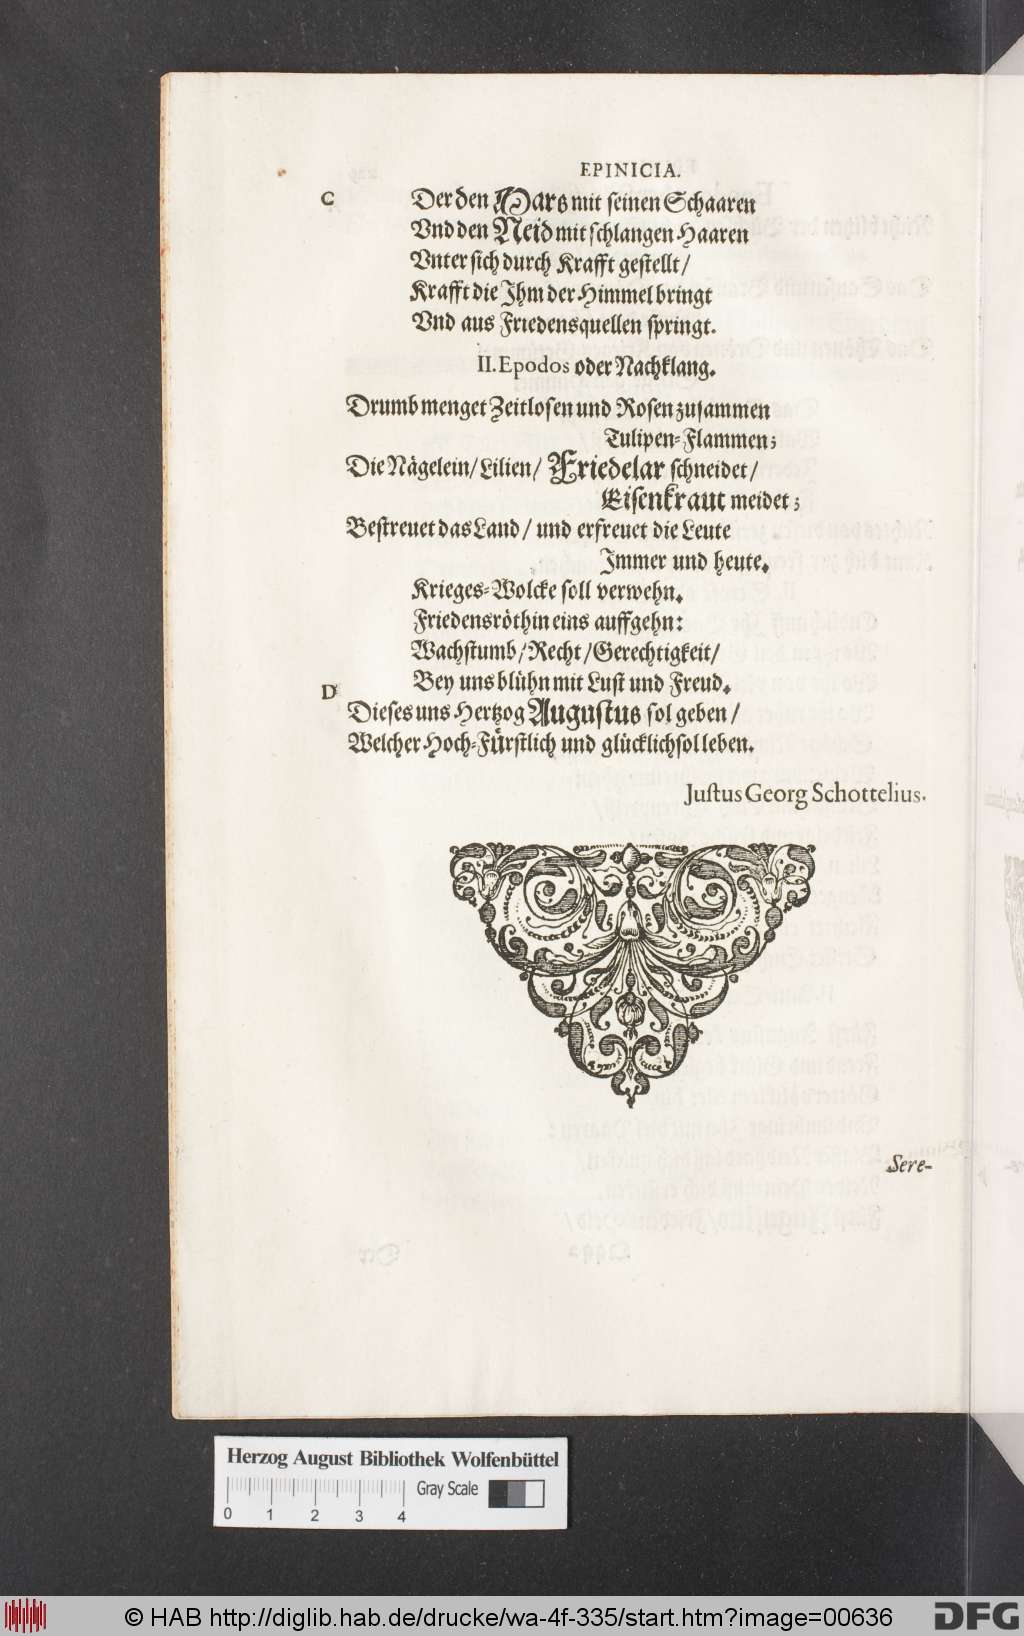 EPINICIA.
C Der den Mars mit seinen Schaaren
Vnd den Neid mit schlangen Haaren
Vnter sich durch Krafft gestellt/
Krafft die Ihm der Himmel bringt
Vnd aus Friedensquellen springt.
II. Epodos oder Nachklang.
Drumb menget Zeitlosen und Rosen zusammen
Tulipen-Flammen;
Die Nägelein/ Lilien/ Friedelar schneidet/
Eisenkraut meidet;
Bestreuet das Land/ und erfreuet die Leute
Immer und heute.
Krieges-Wolcke soll verwehn.
Friedensröthin eins auffgehn:
Wachstumb/ Recht/ Gerechtigkeit/
Bey uns blühn mit Lust und Freud.
D Dieses uns Hertzog Augustus sol geben/
Welcher Hoch-Fürstlich und glücklich sol leben.
Justus Georg Schottelius.
Sere-
Herzog August Bibliothek Wolfenbüttel
Gray Scale
0 1 2 3 4
© HAB http://diglib.hab.de/drucke/wa-4f-335/start.htm?image=00636
DFG